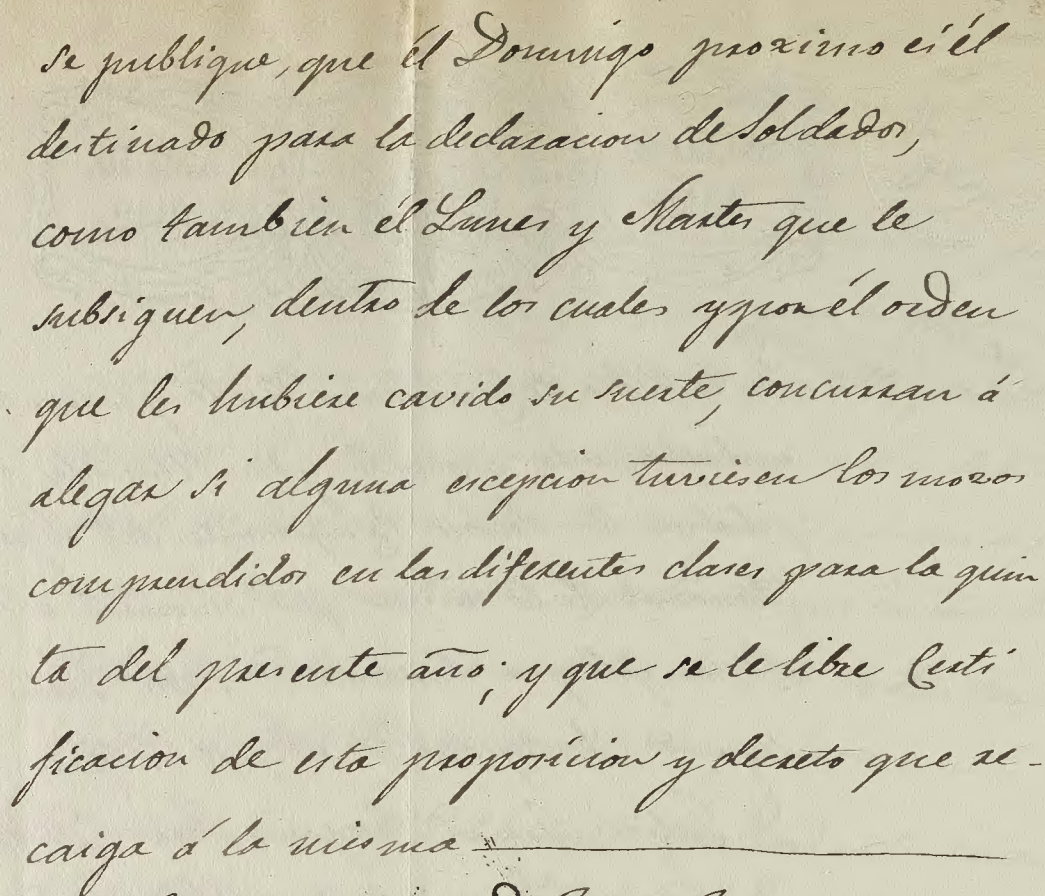 se publique, que él Domingo proximo es él
destinado para la declaracion de Soldados,
como tambien él Lunes y Martes que le
subsiguen, dentro de los cuales y por él orden
que les hubiere cavido su suerte, concurran á
alegar si alguna escepcion tuviesen los mozos
comprendidos en las diferentes clases para la quin
ta del presente año; y que se le libre Certi
ficacion de esta proposicion y decreto que re-
caiga á la misma